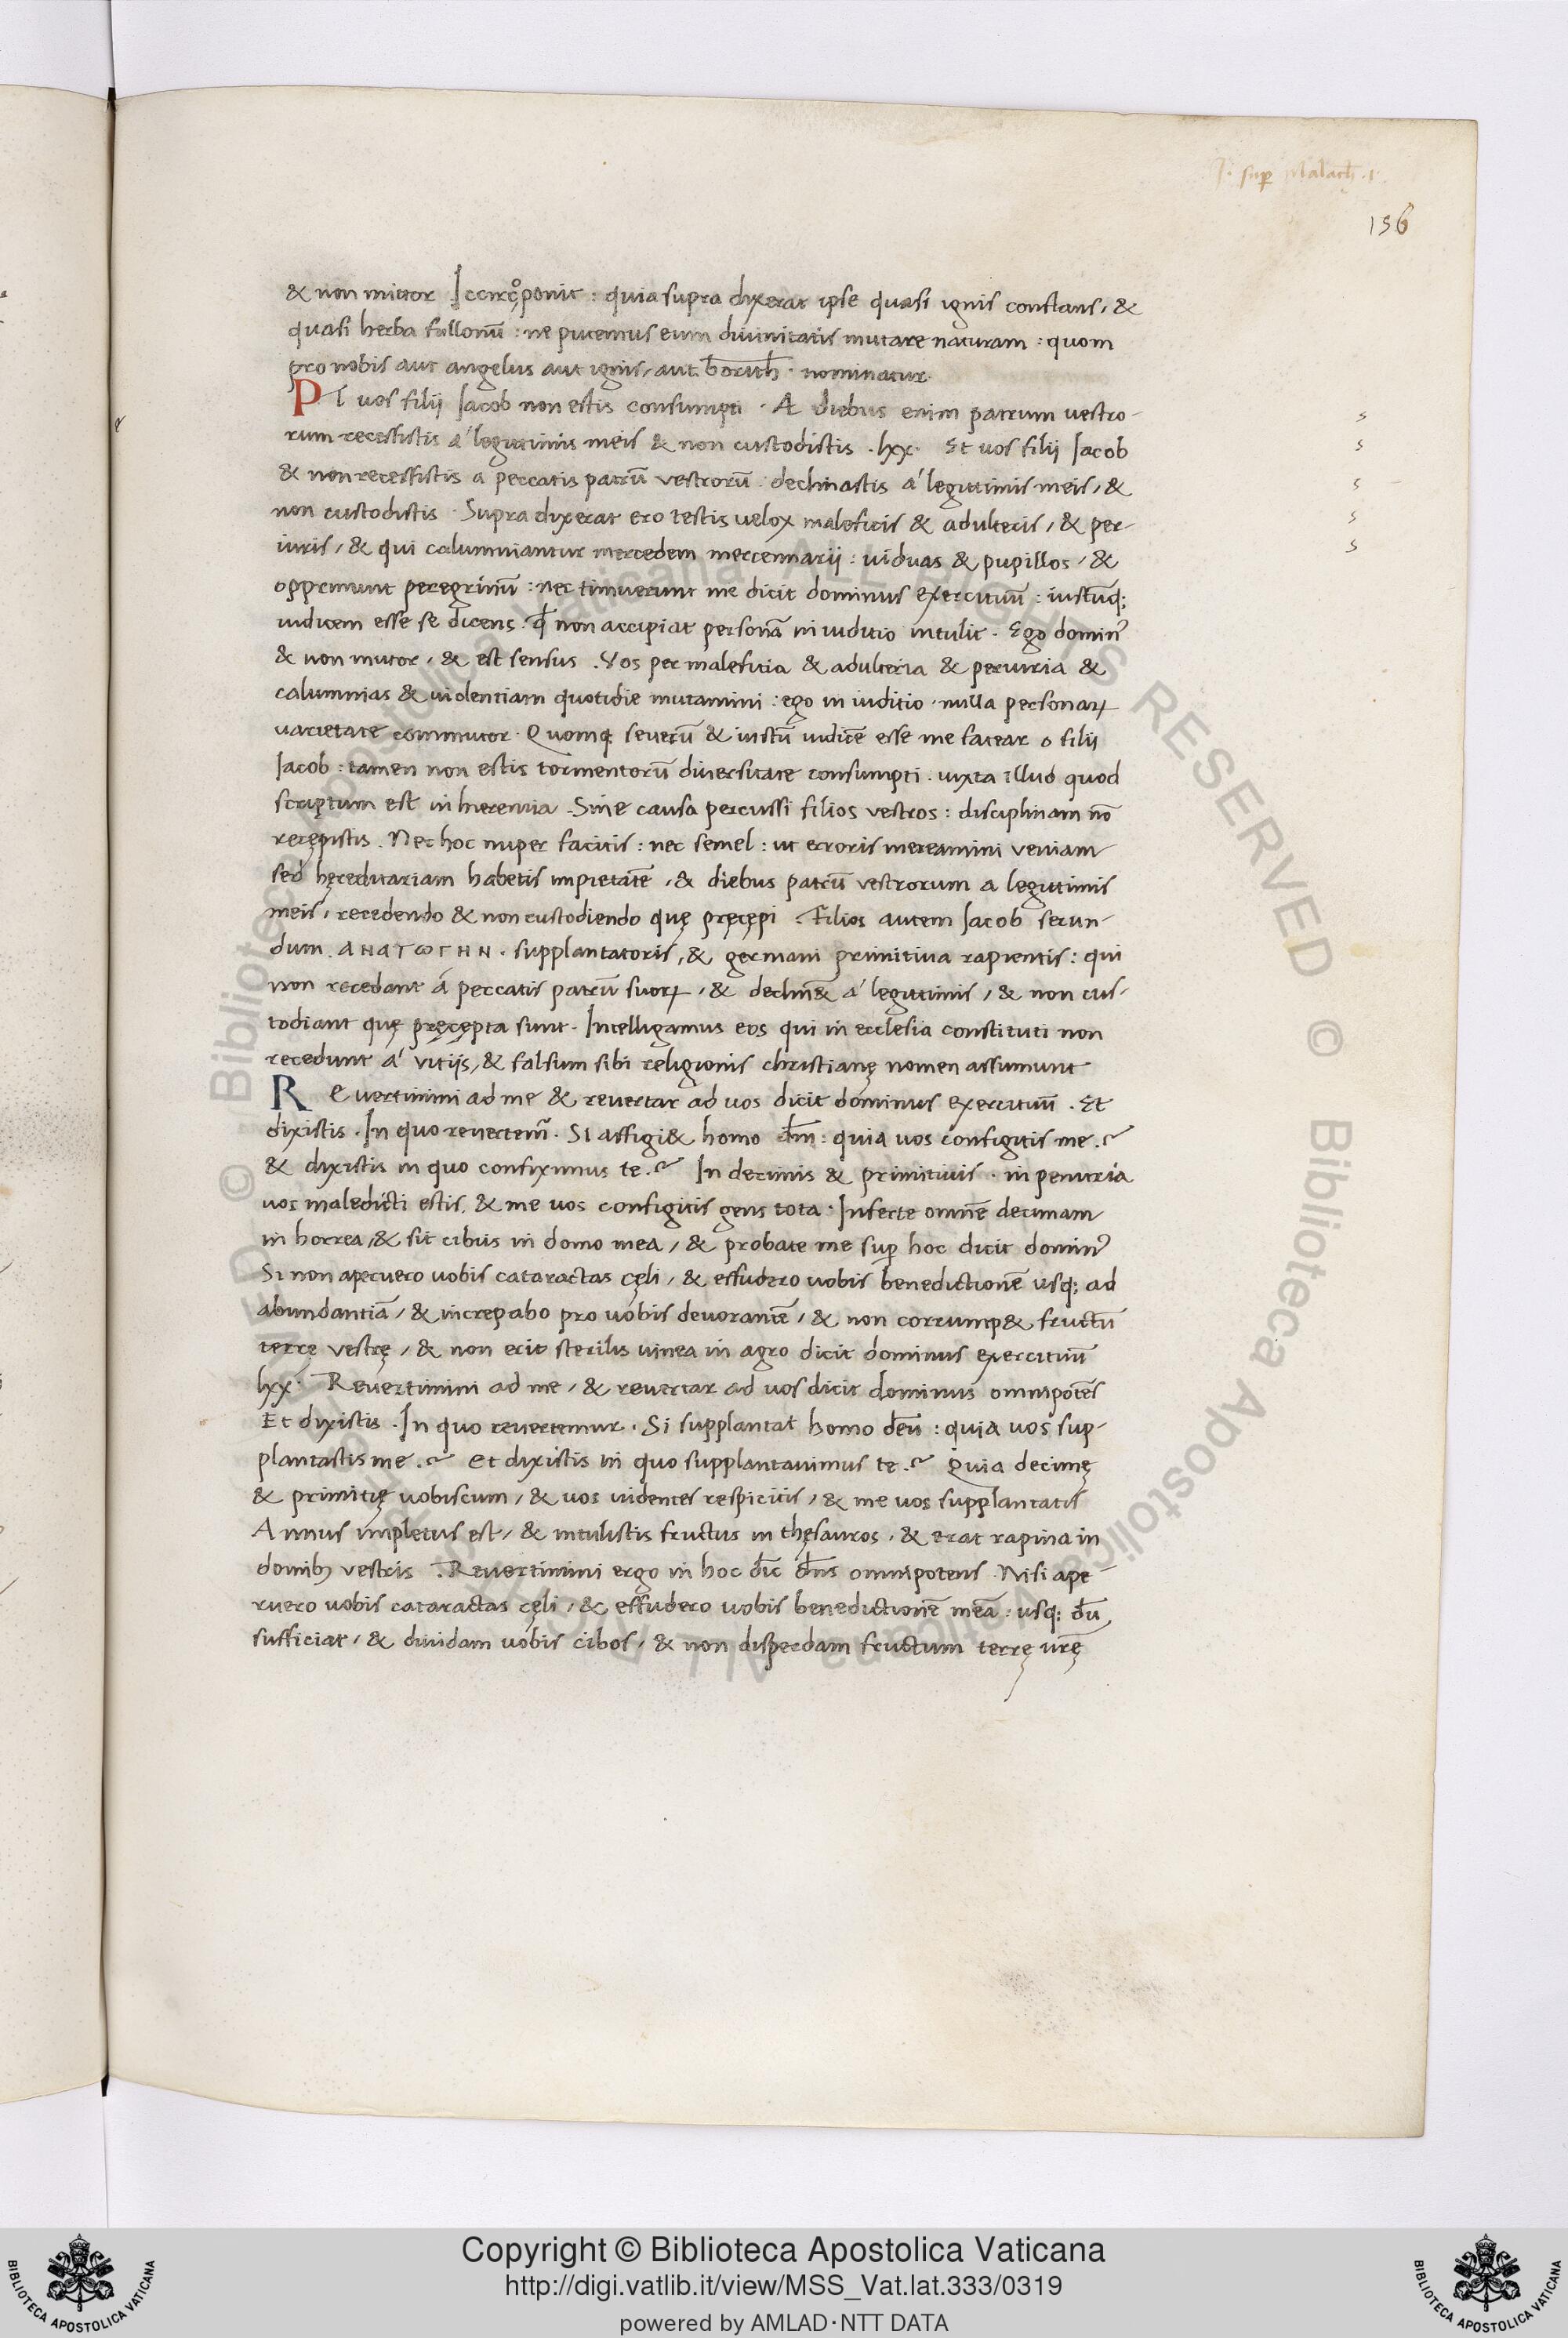 J. sup Malach. 1.
156
& non mutor Iccircͦ ponit : quia supra dixerat ipse quasi ignis constans, &
quasi herba fullonū : ne putemus eum divinitatis mutare naturam : quom
pro nobis aut angelus aut ignis, aut borith · nominatur.
ET vos filii Iacob non estis consumpti · A diebus enim patrum vestro-
rum recessistis á legittimis meis & non custodistis . lxx. Et vos filii Iacob
& non recessistis a peccatis patrū vestrorū . declinastis á legittimis meis, &
non custodistis · Supra dixerat ero testis velox maleficis & adulteris, & per-
iuris, & qui calumniantur mercedem mercennarii : viduas & pupillos, &
opprimunt peregrinū : nec timuerunt me dicit dominus exercituū : iustūq;
iudicem esse se dicens. qđ non accipiat personā in iuditio intulit . Ego dominꝰ
& non mutor, & est sensus . Vos per maleficia & adulteria & periuria &
calumnias & violentiam quotidie mutamini : ego in iuditio nulla personaꝝ
varietate commutor. Quomq; severū & iustū iudicē esse me fatear o filii
Iacob : tamen non estis tormentorū diversitate consumpti . iuxta illud quod
scriptum est in hieremia . Sine causa percussi filios vestros : disciplinam nō
recępistis . Nec hoc nuper facitis : nec semel : ut erroris mereamini veniam
sed hęreditariam habetis impietatē, & diebus patrū vestrorum a legittimis
meis, recedendo & non custodiendo quę pręcępi . Filios autem Iacob secun-
dum . ΑΝΑΓωΓΗΝ . supplantatoris, & germani primitiva rapientis : qui
non recedant á peccatis patrū suoꝝ, & declin& á legittimis, & non cus-
todiant quę pręcępta sunt . Intelligamus eos qui in ecclesia constituti non
recedunt á vitiis, & falsum sibi religionis christianę nomen assumunt
R Evertimini ad me & revertar ad vos dicit dominus exercituū . Et
dixistis . In quo revertem̃ . Si affigi& homo dm̄ : quia vos configitis me .?
& dixistis in quo confiximus te .? In decimis & primitivis . in penuria
vos maledicti estis, & me vos configitis gens tota . Inferte omnē decimam
in horrea, & sit cibus in domo mea, & probate me sup hoc dicit dominꝰ
Si non aperuero vobis cataractas cęli, & effudero vobis benedictionē usq; ad
abundantiā, & increpabo pro vobis devorantē, & non corrump& fructū
terrę vestrę, & non erit sterilis vinea in agro dicit dominus exercituū
lxx. Revertimini ad me, & revertar ad vos dicit dominus omnipotēs
Et dixistis . In quo revertemur . Si supplantat homo deū : quia vos sup-
plantastis me .? Et dixistis in quo supplantavimus te .? Quia decimę
& primitię vobiscum, & vos videntes respicitis, & me vos supplantatis
Annus impletus est, & intulistis fructus in thęsauros, & erat rapina in
domibꝫ vestris . Revertimini ergo in hoc dic̄ dn̄s omnipotens . Nisi ape-
ruero vobis cataractas cęli, & effudero vobis benedictionē meā : usq; dū
sufficiat, & dividam vobis cibos, & non disperdam fructum terrę vrę̄
Copyright © Biblioteca Apostolica Vaticana
http://digi.vatlib.it/view/MSS_Vat.lat.333/0319
powered by AMLAD·NTT DATA